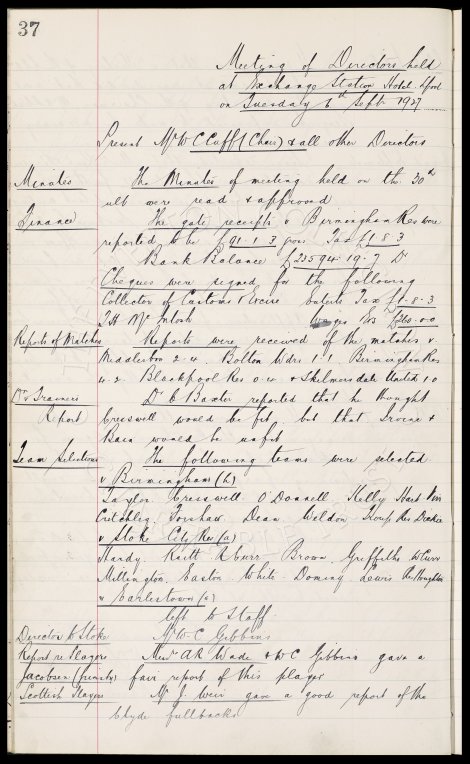 37
Meeting of Directors held
at Exchange Station Hotel L'pool
on Tuesday 6th Sept. 1927
Present Mr W C Cuff (Chair) & all other Directors
Minutes The Minutes of meeting held on the 30th
ult were read & approved
Finance The gate receipts v Birmingham Res were
reported to be £91. 1. 3 gross Tax £1. 8. 3
Bank Balance £23594. 19. 7 Dr
Cheques were signed for the following
Collector of Customs & Excise Tax £1. 8. 3
T H McIntosh Wages £260. 0. 0
Reports of Matches Reports were received of the matches v.
Middlesbro 2. 4. Bolton Wdrs 1. 1. Birmingham Res
4. 2 Blackpool Res 0. 4. & Skelmersdale United 1 0
Dr & Trainers Dr C Baxter reported that he thought
Report Cresswell would be fit but that Irvine &
Bain would be unfit
Team Selections The following teams were selected
v Birmingham (h)
Taylor. Cresswell O'Donnell. Kelly Hart Virr
Critchley. Forshaw. Dean. Weldon. Troup Res Dooker
v Stoke City Res (a)
Hardy. Raitt Kerr Brown Griffiths W Curr
Millington. Easton. White. Dominy Lewis Res Houghton
v Earlestown (a)
left to Staff
Director to Stoke Mr W. C Gibbins
Report re. Players Messrs A R Wade & W C Gibbins gave a
Jacobsen fair report of this player
Scottish Players Mr J. Weir gave a good report of the
Clyde fullbacks